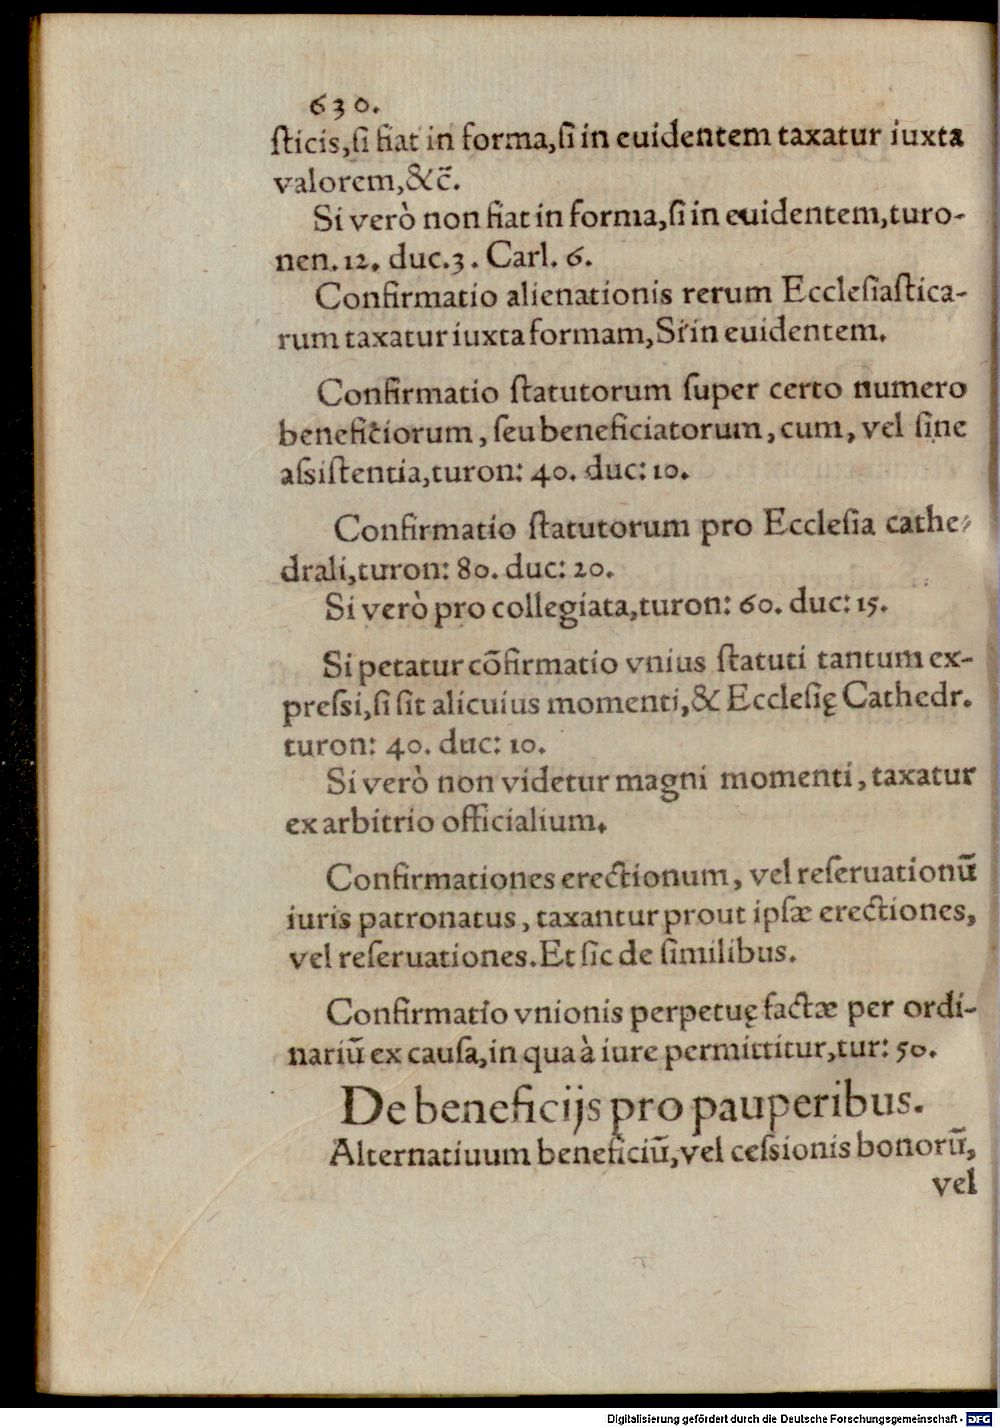 630.
sticis,si fiat in forma,si in euidentem taxatur iuxta
valorem,&c̃.
Si verò non fiat in forma,si in euidentem,turo-
nen.12. duc.3. Carl. 6.
Confirmatio alienationis rerum Ecclesiastica-
rum taxatur iuxta formam,Si in euidentem.
Confirmatio statutorum super certo numero
beneficiorum, seu beneficiatorum, cum, vel sine
assistentia,turon: 40. duc: 10.
Confirmatio statutorum pro Ecclesia cathe-
drali,turon: 80. duc: 20.
Si verò pro collegiata,turon: 60. duc: 15.
Si petatur cõfirmatio vnius statuti tantum ex-
pressi,si sit alicuius momenti,& Ecclesię Cathedr.
turon: 40. duc: 10.
Si verò non videtur magni momenti, taxatur
ex arbitrio officialium.
Confirmationes erectionum, vel reseruationũ
iuris patronatus, taxantur prout ipsæ erectiones,
vel reseruationes.Et sic de similibus.
Confirmatio vnionis perpetuę factæ per ordi-
nariũ ex causa,in qua à iure permittitur,tur: 50.
De beneficijs pro pauperibus.
Alternatiuum beneficiũ,vel cessionis bonorũ,
vel
Digitalisierung gefördert durch die Deutsche Forschungsgemeinschaft - DFG